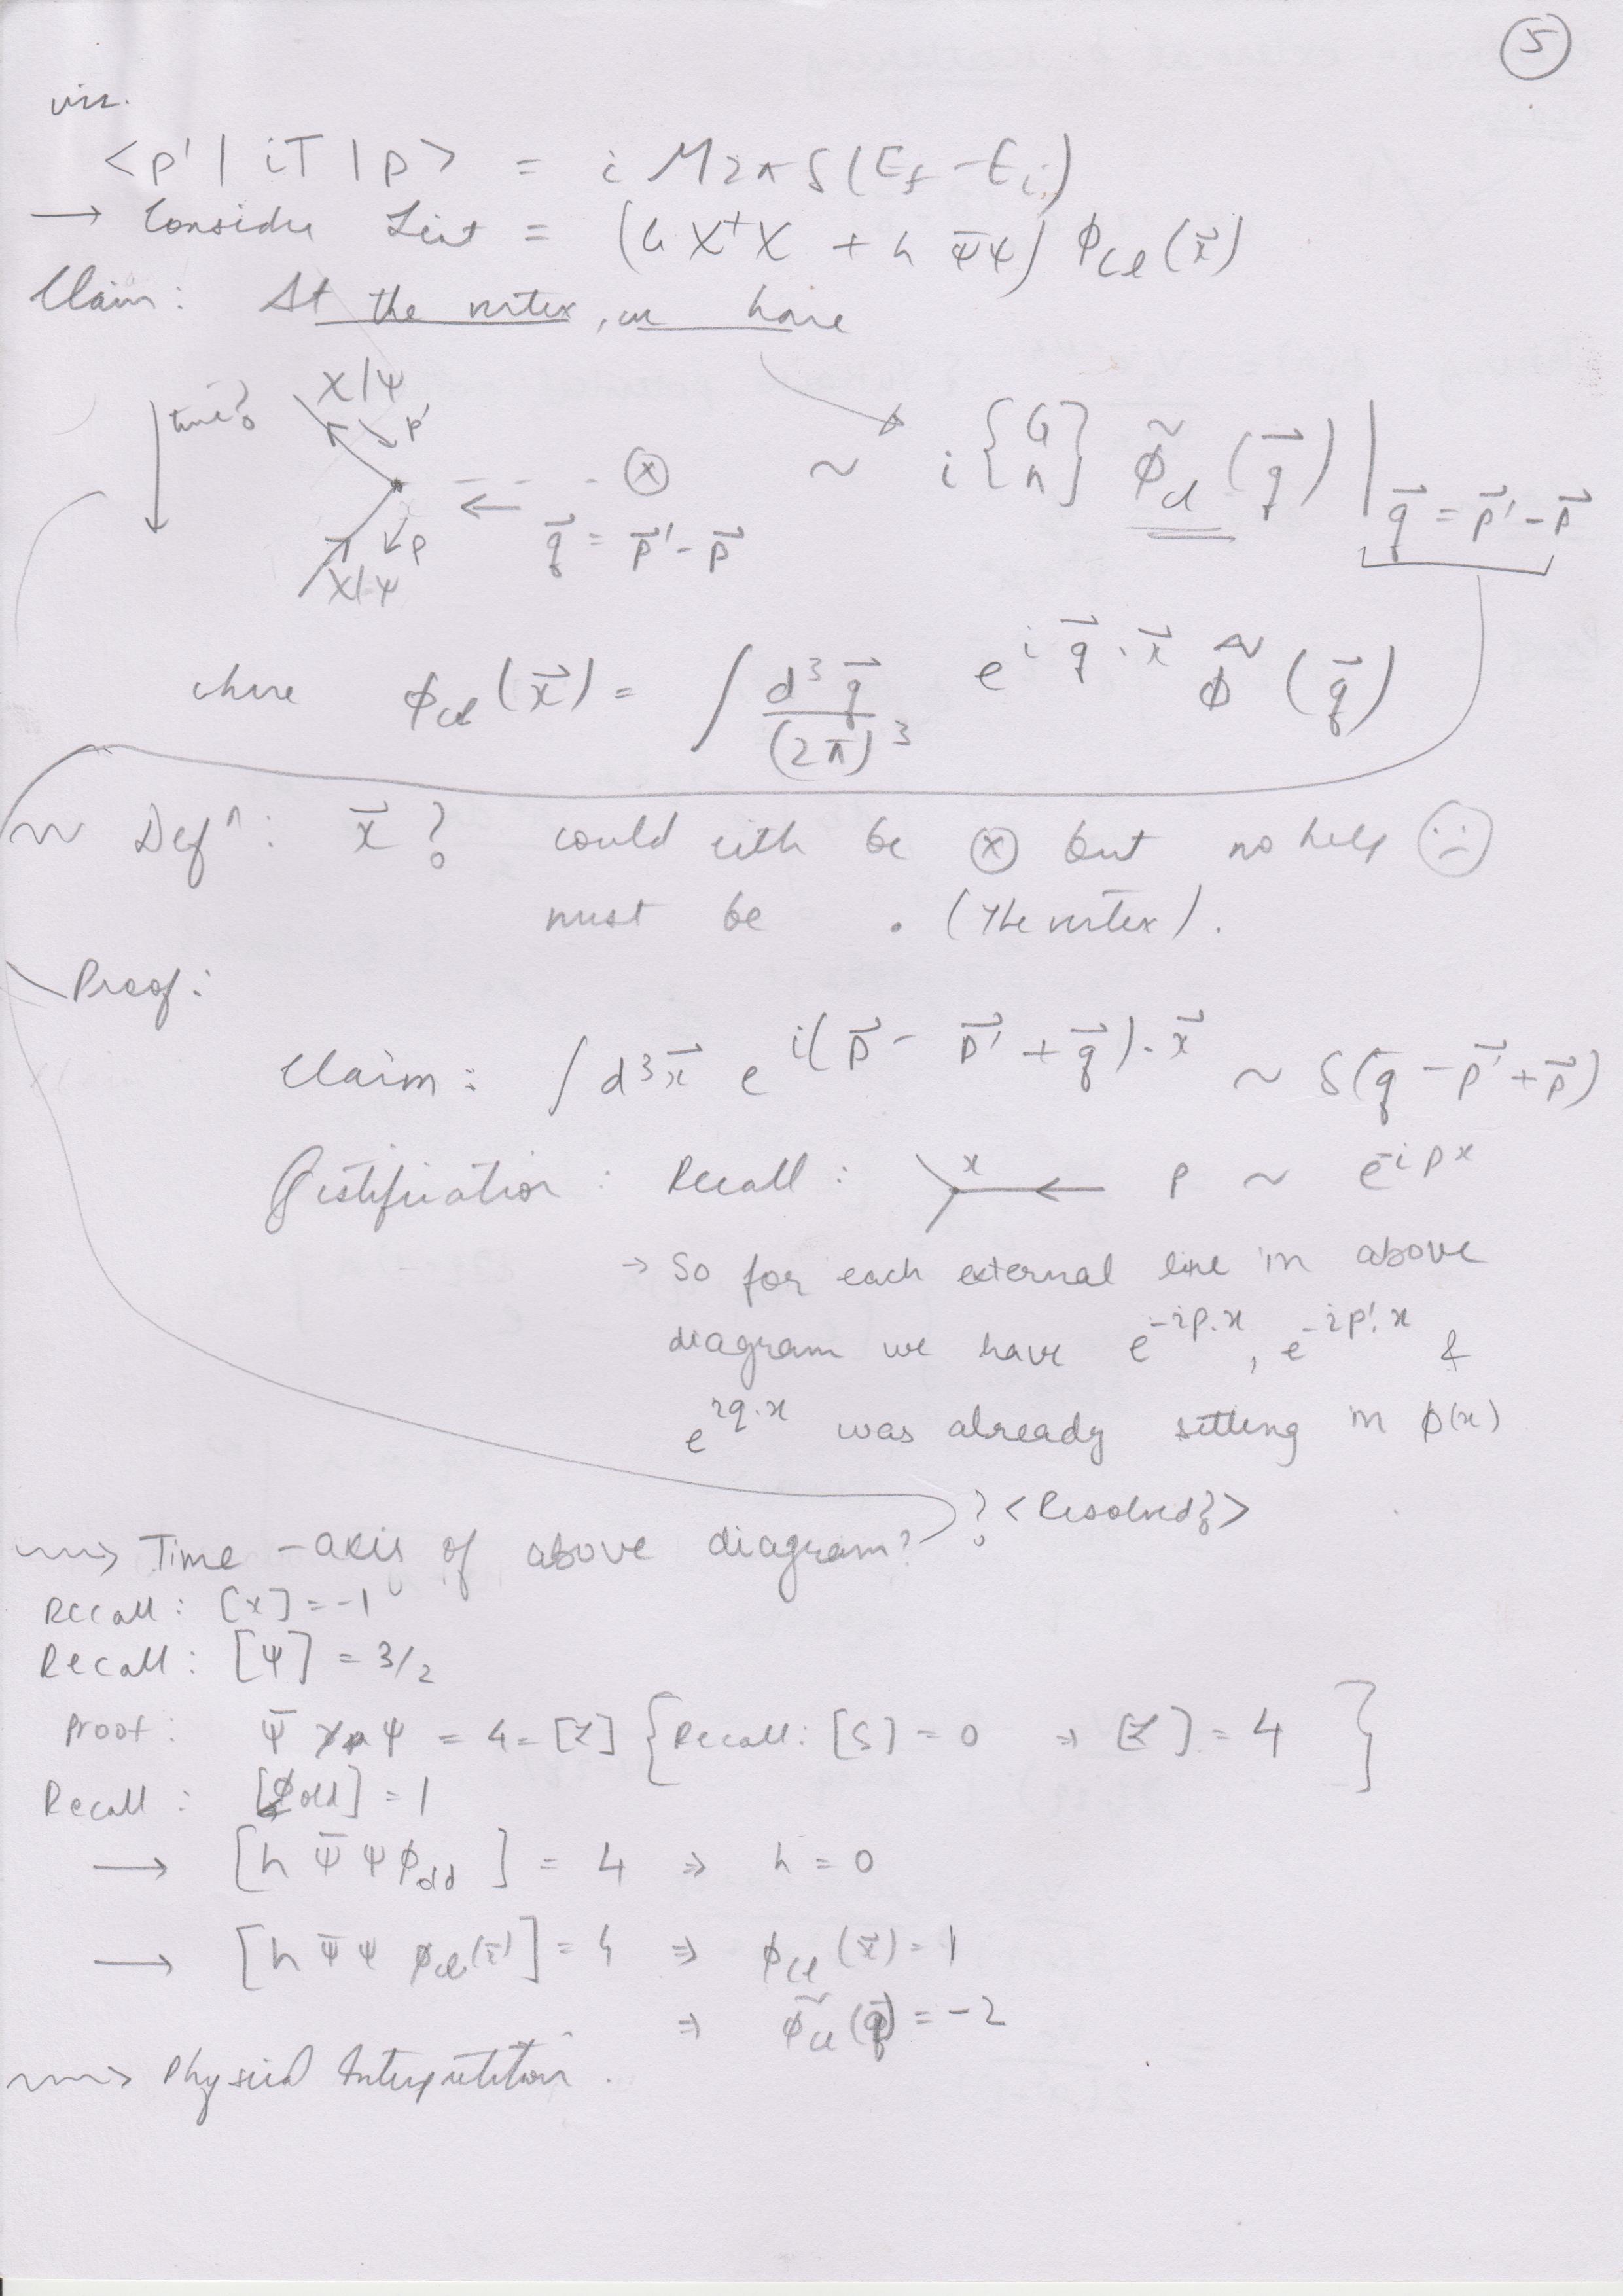 5
viz.
<p'| iT |p> = i M 2π δ(E_f - E_i)
→ Consider Lint = (G χ†χ + h ψ̄ψ) φ_cl(x⃗)
Claim: At the vertex, we have
time?
χ/ψ
p'
⊗ ~ i {G h} φ̃_cl(q⃗) | q⃗ = p⃗' - p⃗
p
q⃗ = p⃗' - p⃗
χ/ψ
where φ_cl(x⃗) = ∫ d³q⃗/(2π)³ e^{i q⃗·x⃗} φ̃(q⃗)
Defⁿ: x⃗? could eith be ⊗ but no help ☹
must be . (the vertex).
Proof:
Claim: ∫ d³x⃗ e^{i(p⃗ - p⃗' + q⃗)·x⃗} ~ δ(q⃗ - p⃗' + p⃗)
Justification: Recall: x p ~ e^{-ipx}
→ So for each external line in above
diagram we have e^{-ip·x}, e^{-ip'·x} &
e^{iq·x} was already sitting in φ(x)
? <Resolved?>
Time-axis of above diagram?
Recall: [x] = -1
Recall: [ψ] = 3/2
Proof: ψ̄ ∂̸_μ ψ = 4 = [L] {Recall: [S] = 0 ⇒ [L] = 4}
Recall: [φ_old] = 1
→ [h ψ̄ ψ φ_old] = 4 ⇒ h = 0
→ [h ψ̄ ψ φ_cl(x⃗)] = 4 ⇒ φ_cl(x⃗) = 1
⇒ φ̃_cl(q⃗) = -2
Physical Interpretation.